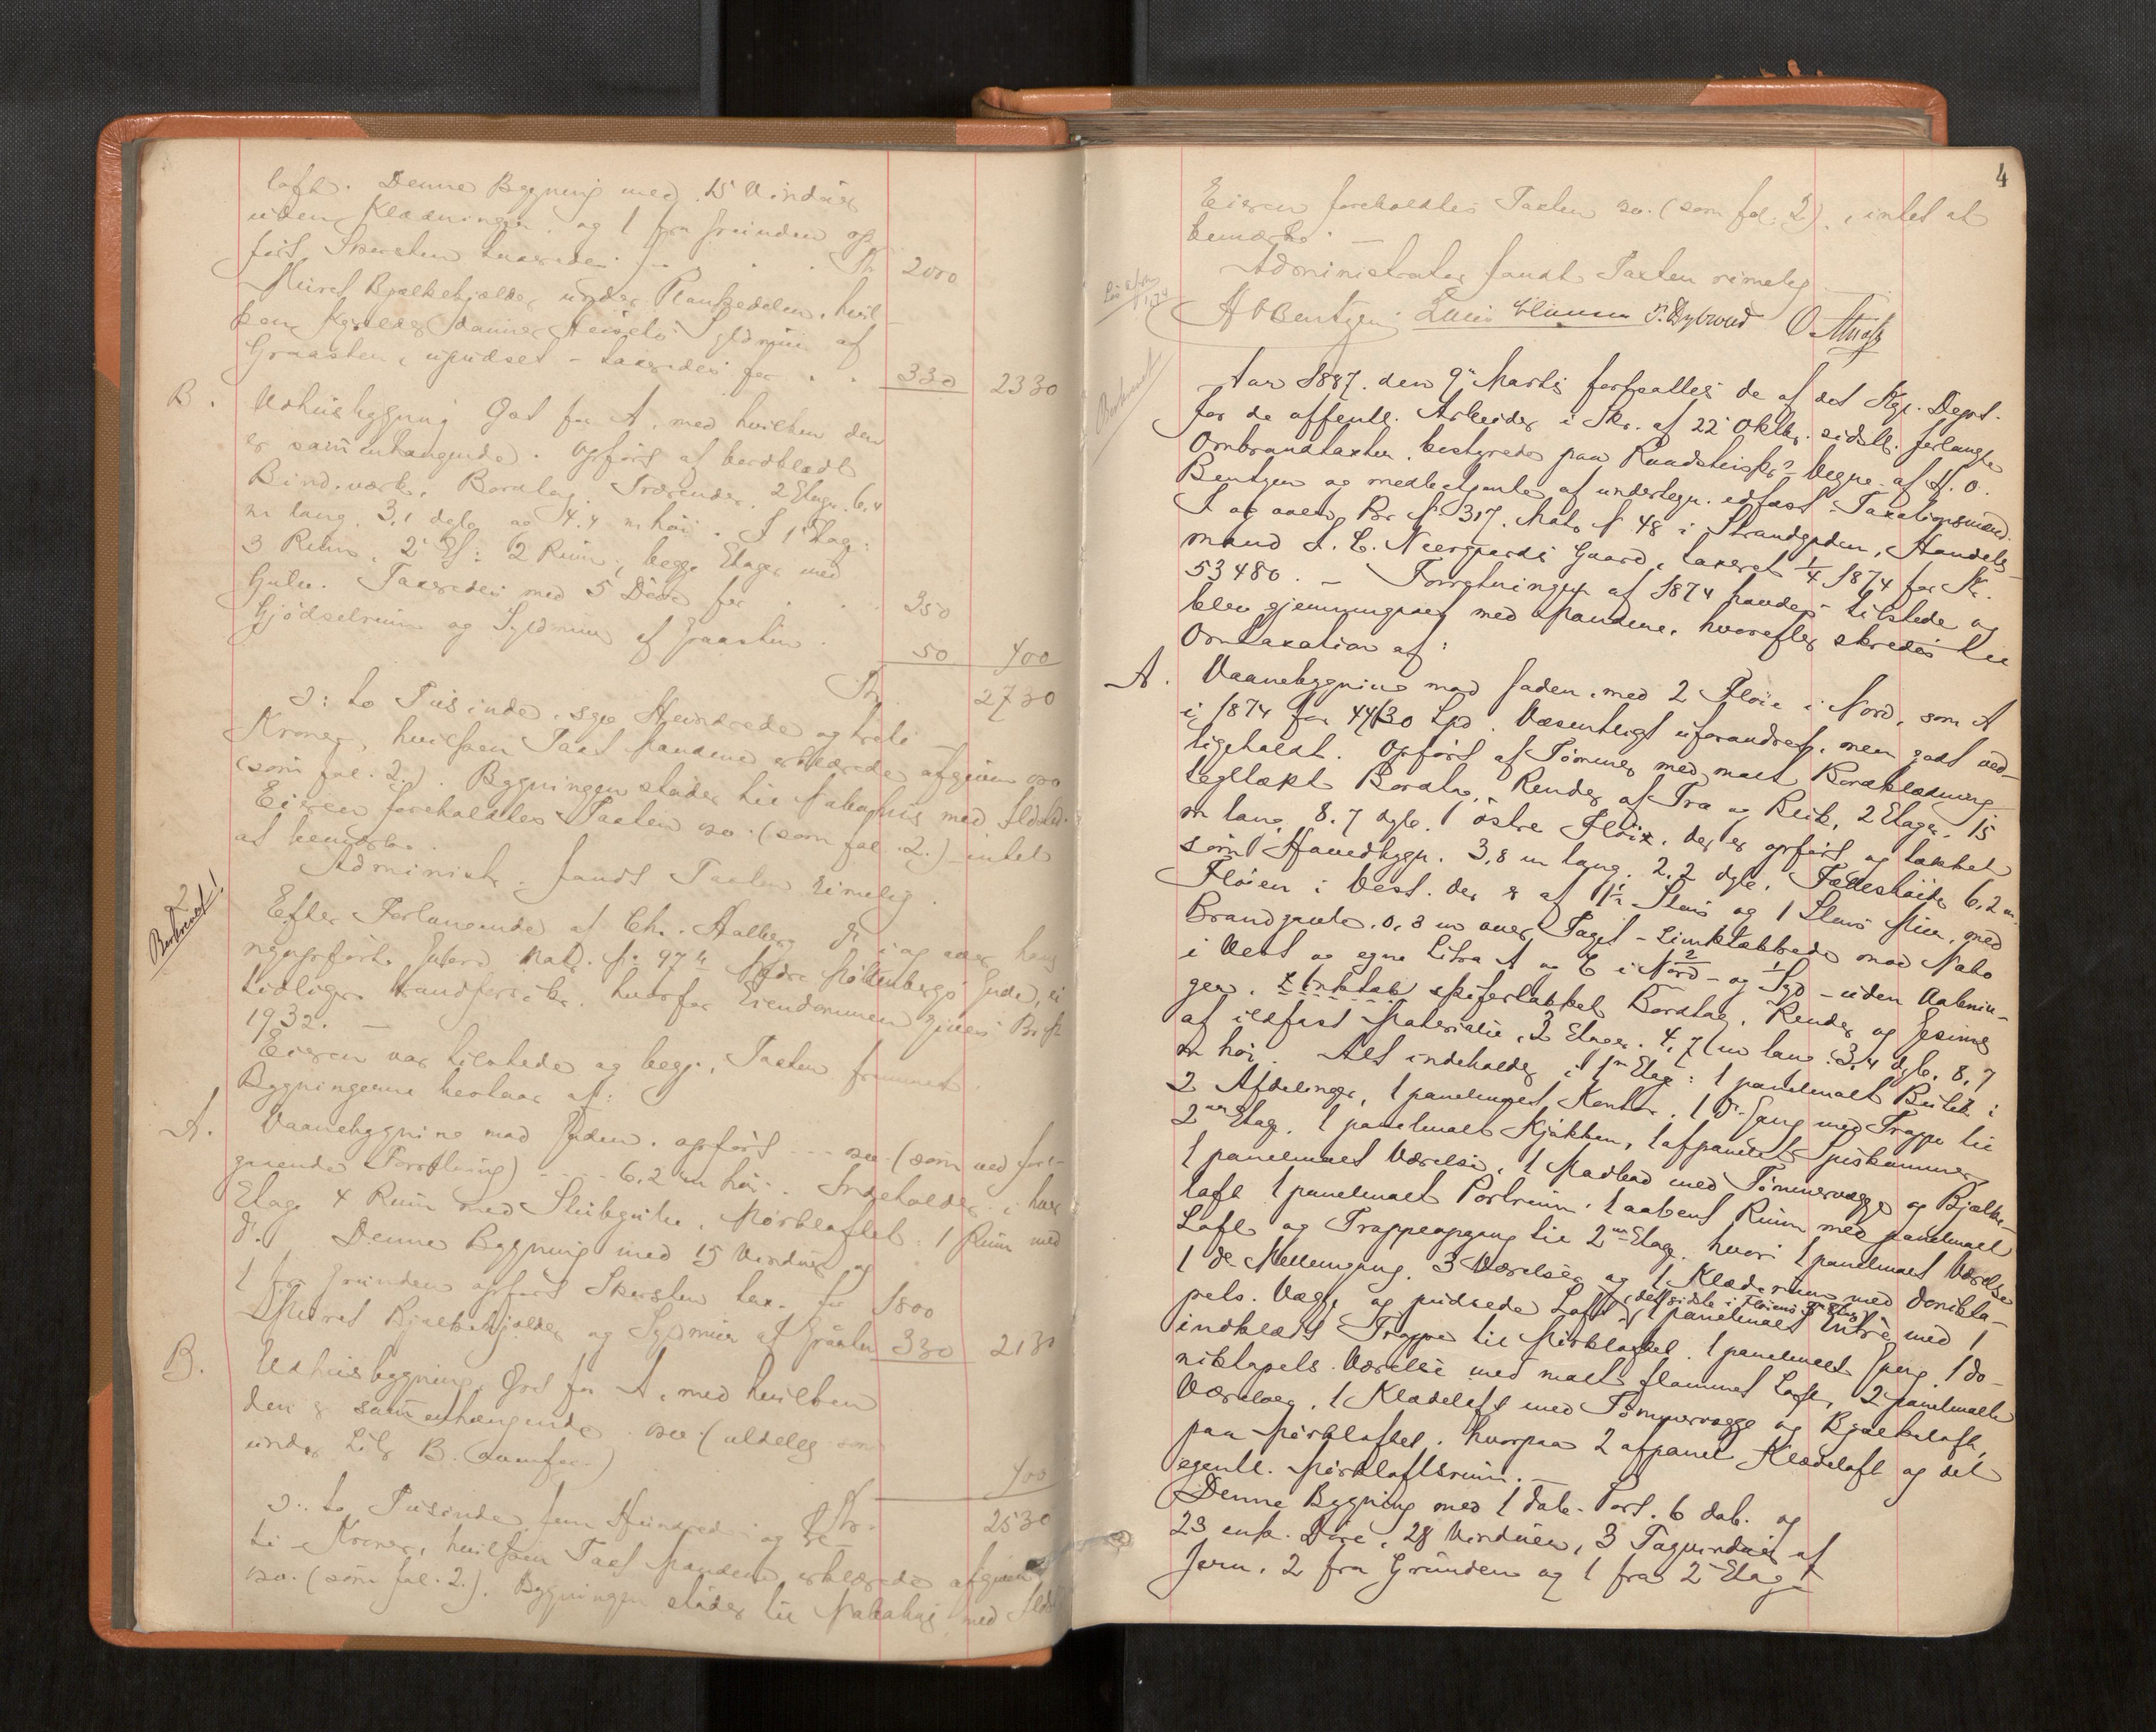 loft. Denne Bygning med 15 Vinduer
uden Klædninger og 1 fra Grunden op
ført Skorsten taxeredes for . . . Kr. 2000
Muret Bjælkekjelder under Plankedelen, hvil-
ken Kjelder danner Husets Syldmur af
Graasten, upudset - taxeredes for . . 330 2330
B. Udhusbygning Øst for A, med hvilken den
er sammenhængende. Opført af bordklædt
Bindværk, Bordtag, Trærender, 2 Etager, 6,4
m lang, 3,1 dyb og 4,4 m høi. I 1 Etag:
3 Rum, 2 Et: 2 Rum, begge Etager med
Gulv. Taxeredes med 5 Døre for . . . 350
Gjødselrum og Syldmur af Graasten . 50 400
Kr. 2730
ɔ: to Tusinde, syv Hundrede og treti
Kroner, hvilken Taxt Mændene erklærede afgiven osv
(som fol. 2.). Bygningen støder til Nabohus med Ildsted.
Eieren foreholdtes Taxten osv. (som fol. 2.) - intet
at bemærke.
Administr. fandt Taxten rimelig.
2
Beskrevet!
Efter Forlangende af Chr. Aalberg Dr. i og over hans
nyopførte Gaard Matr. No 97 h Nedre Møllenbergs Gade, ei
tidligere brandforsikr. hvorfor Eiendommen gives Br. No
1932. —
Eieren var tilstede og begj. Taxten fremmet.
Bygningerne bestaar af:
A. Vaanebygning mod Gaden, opført --- osv (som ved fore-
gaaende Forretning) - - - 6,2 m høi. Indeholder i hver
Etage 4 Rum med Stubgulv, Mørkloftet: 1 Rum med
Do. Denne Bygning med 15 Vinduer og
1 fra Grunden opført Skorsten tax. for 1800
Muret Bjælkekjelder og Syldmur af Graasten 330 2130
B. Udhusbygning, Øst for A, med hvilken
den er sammenhængende osv (aldeles som
under Litr B. ovenfor) 400
Kr. 2530
ɔ: to Tusinde fem Hundrede og tre-
ti Kroner, hvilken Taxt Mændene erklærede afgiven
osv. (som fol. 2.). Bygningen støder til Nabohus med Ildst
4
Eieren foreholdtes Taxten osv. (som fol. 2), intet at
bemærke. —
Administrator fandt Taxten rimelig —
A O Bentzen Louis P. Dybwad O
Beskrevet
Aar 1887 den 9de Marts fortsattes de af det Kgl. Depart.
for de offentl. Arbeider i Skr. af 22 Oktbr. sidstl. forlangte
Ombrandtaxter, bestyrede paa Raadstueskr. Vegne af A. O.
Bentzen og medbetjente af undertegn. edfæst. Taxationsmænd.
I og over Br. No 317. Matr No 48 i Strandgaden, Handels-
mand J. C. Neergaards Gaard, taxeret 1/4 1874 for Kr.
53480. - Forretningen af 1874 havdes tilstede og
blev gjennemgaaet med Mændene, hvorefter skredes til
Omtaxation af:
A. Vaanebygning mod Gaden, med 2 Fløie i Nord, som A
i 1874 for 44130 Spd. Væsentligt uforandret, men godt ved-
ligeholdt. Opført af Tømmer med malt Bordklædning
tegltækt Bordtag, Render af Træ og Blik, 2 Etager, 15
m lang, 8,7 dyb. 1 østre Fløi, der er opført og tækket
som Hovedbygn. 3,8 m lang, 2,2 dyb. Fælleshøide 6,2 m.
Fløien i Vest, der er af 1½ Stens og 1 Stens Mur, med
Brandgavle 0,3 m over Taget - Zinktækkede mod Nabo
i Vest og egne Litra A og C i Nord 2 - og 1 Syd - uden Aabnin-
ger. Zinktak skifertækket Bordtag, Render og Gesims
af ildfast Materiale, 3 Etager, 4,7 m lang, 3,4 dyb, 8,7
m høi. Alt indeholder i 1ste Etag: 1 panelmalt Butik i
2 Afdelinger, 1 panelmalt Kontor, 1 Do. Gang med Trappe til
2den Etag, 1 panelmalt Kjøkken, 1 afpanelet Spiskammer,
1 panelmalt Værelse, 1 Madbod med Tømmervægge og Bjælke-
loft 1 panelmalt Portrum, 1 aabent Rum med panelmalt
Loft og Trappeopgang til 2den Etag, hvori 1 panelmalt Værelse
1 do Mellemgang, 3 Værelser og 1 Klæderum med Donikta-
pets. Vægge og pudsede Loft (det sidste i Fløiens 3die Etag) 1 panelmalt Entre med 1
indklædt Trappe til Mørkloftet, 1 panelmalt Gang, 1 do-
niktapets. Værelse med malt flammet Loft, 2 panelmalte
Værelser, 1 Klædeloft med Tømmervægge og Bjælkeloft,
paa Mørkloftet, hvorpaa 2 afpanel. Klædeloft og det
egentl. Mørkloftsrum. —
Denne Bygning med 1 dob. Port, 6 dob. og
23 enk. Døre, 28 Vinduer, 3 Tagvinduer af
Jern, 2 fra Grunden og 1 fra 2 Etage